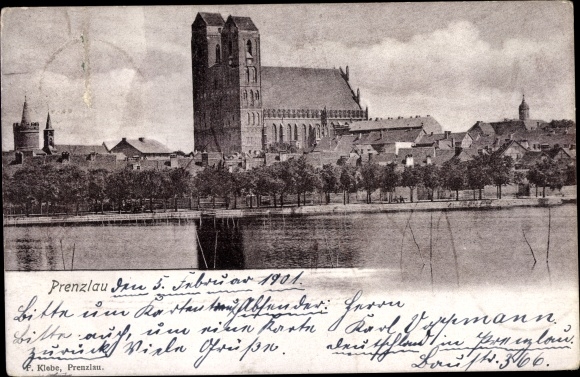 Prenzlau den 5. Februar 1901.
Bitte um Karten Absender: Herrn
Bitte auch, um eine Karte Karl
zurück. Viele Grüße. deutschland in Prenzlau.
Baustr. 366.
F. Klebe, Prenzlau.